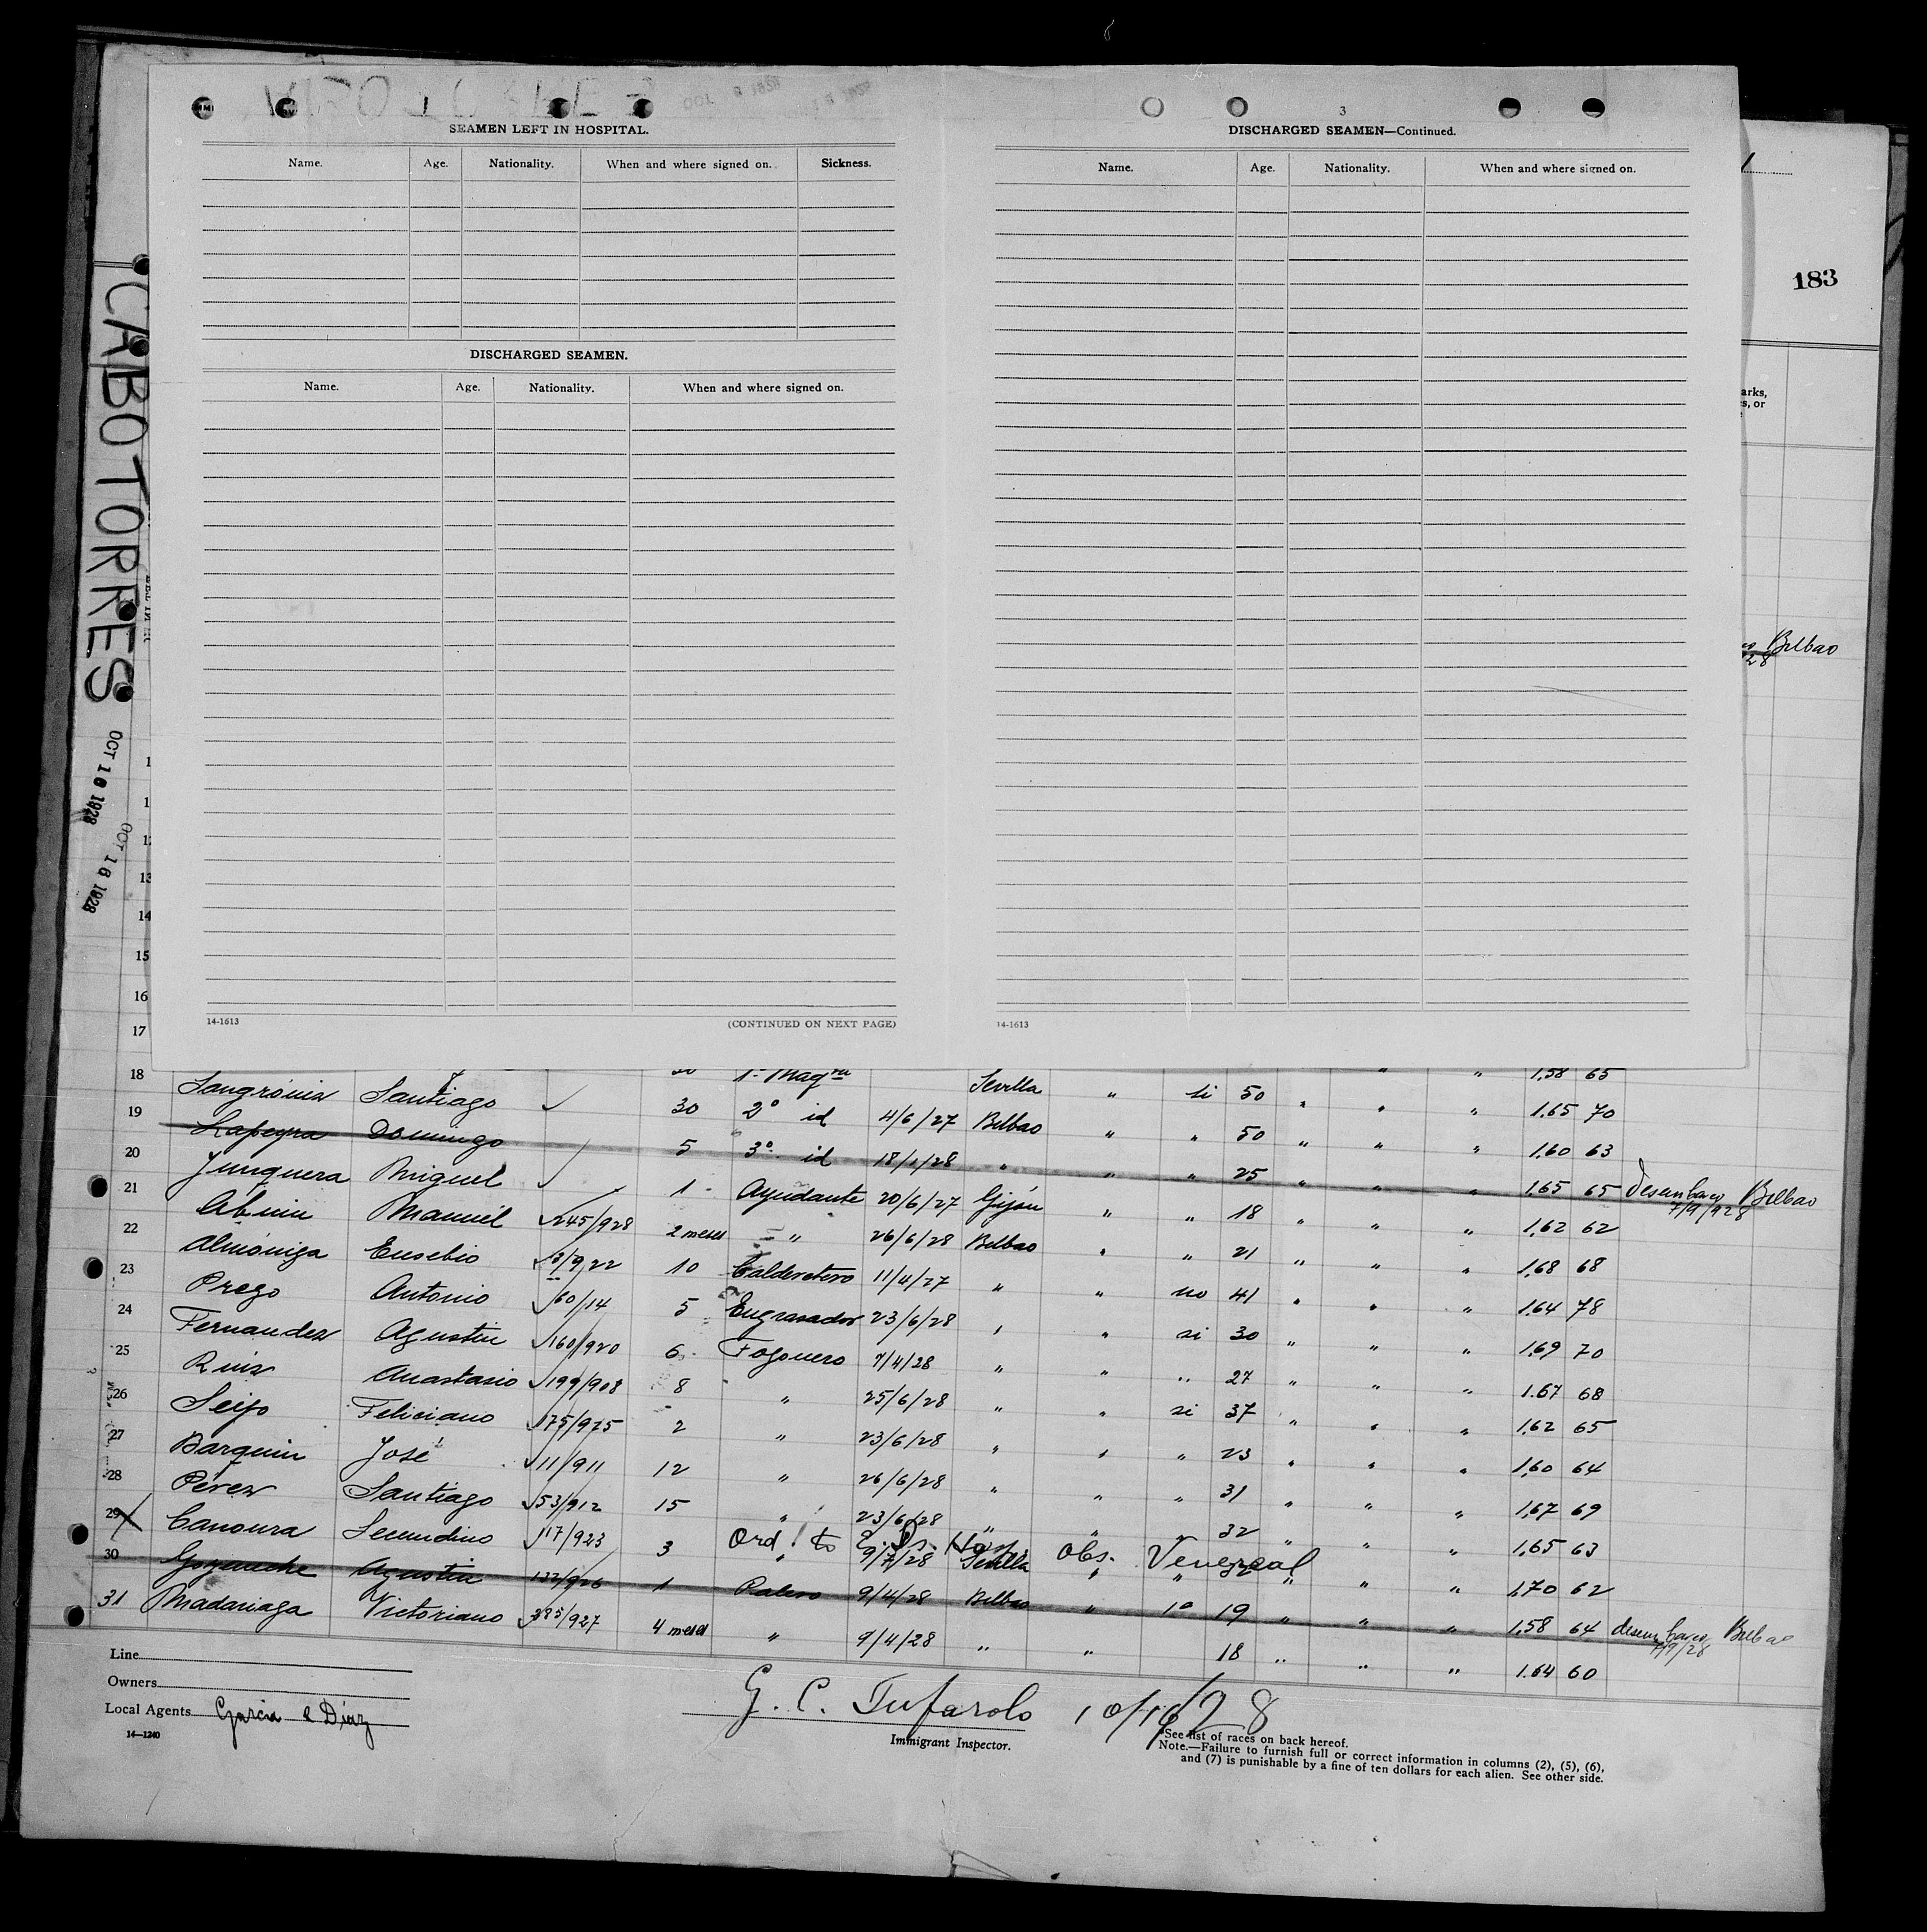 3
SEAMEN LEFT IN HOSPITAL.
Name. Age. Nationality. When and where signed on. Sickness.
DISCHARGED SEAMEN.
Name. Age. Nationality. When and where signed on.
14-1613 (CONTINUED ON NEXT PAGE)
DISCHARGED SEAMEN—Continued.
Name. Age. Nationality. When and where signed on.
14-1613
183
arks,
s, or
Bilbao
28
CABO TORRES
OCT 16 1928
OCT 16 1928
13
14
15
16
17
18 Sevilla 1,58 65
19 Sangróniz Santiago 30 2º id 4/6/27 Bilbao " si 50 " " " 1.65 70
20 Lapeyra Domingo 5 3º id 18/1/28 " " " 50 " " " 1,60 63
21 Junquera Miguel 1 Ayudante 20/6/27 Gijón " " 25 " " " 1,65 65 desembarco Bilbao
7/9/928
22 Manuel 245/928 2 meses " 26/6/28 Bilbao " " 18 " " " 1,62 62
23 Almóniga Eusebio 3/922 10 Calderetero 11/4/27 " " 21 " " " 1,68 68
24 Prego Antonio 60/14 5 Engrasador 23/6/28 " " no 41 " " " 1,64 78
25 Fernandez Agustin 160/920 6 Fogonero 9/4/28 " " si 30 " " " 1,69 70
26 Ruiz Anastasio 199/908 8 " 25/6/28 " " " 27 " " " 1.67 68
27 Seijo Feliciano 175/925 2 " 23/6/28 " " si 37 " " " 1,62 65
28 Barquin José 11/911 12 " 26/6/28 " " " 23 " " " 1,60 64
29 Perez Santiago 53/912 15 " 23/6/28 " " " 31 " " " 1,67 69
30 Canoura Secundino 17/923 3 " 9/7/28 Sevilla " " 32 " " " 1,65 63
Ord. to Hosp. Obs. Venereal
31 Agustin 132/926 1 Palero 9/4/28 Bilbao " 19 " " " 1,58 64 desembarco Bilbao
7/9/28
Madariaga Victoriano 385/927 4 meses " 9/4/28 " " 18 " " " 1.64 60
Line
Owners
Local Agents Garcia & Diaz
14—1240
G. C. Tufarolo 10/16/28
Immigrant Inspector.
*See list of races on back hereof.
Note.—Failure to furnish full or correct information in columns (2), (5), (6),
and (7) is punishable by a fine of ten dollars for each alien. See other side.